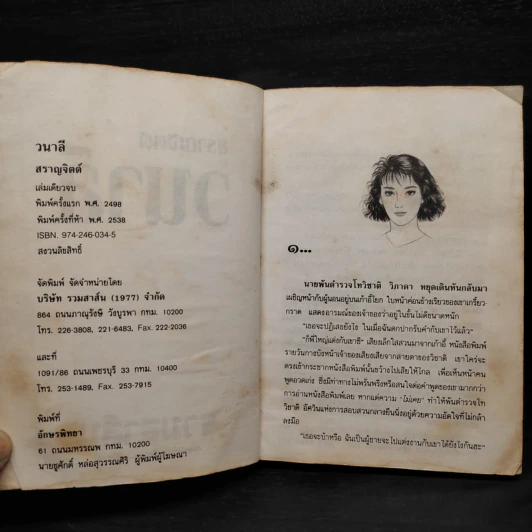 วนาลี
สราญจิตต์
เล่มเดียวจบ
พิมพ์ครั้งแรก พ.ศ. 2498
พิมพ์ครั้งที่ห้า พ.ศ. 2538
ISBN. 974-246-034-5
สงวนลิขสิทธิ์
จัดพิมพ์ จัดจำหน่ายโดย
บริษัท รวมสาส์น (1977) จำกัด
864 ถนนภาณุรังษี วังบูรพา กทม. 10200
โทร. 226-3808, 221-6483, Fax. 222-2036
และที่
1091/86 ถนนเพชรบุรี 33 กทม. 10400
โทร. 253-1489, Fax. 253-7915
พิมพ์ที่
อักษรพิทยา
61 ถนนมหรรณพ กทม. 10200
นายชูศักดิ์ หล่อสุวรรณศิริ ผู้พิมพ์ผู้โฆษณา
๑...
นายพันตำรวจโทวิชาติ วิภาดา หยุดเดินหันกลับมา
เผชิญหน้ากับผู้นอนอยู่บนเก้าอี้โยก ใบหน้าค่อนข้างเรียวของเขาเกรี้ยว-
กราด แสดงอารมณ์ของเจ้าของว่าอยู่ในขั้นไม่ดีขนาดหนัก
"เธอจะปฏิเสธยังไง ในเมื่อฉันตกปากรับคำกับเขาไว้แล้ว"
"ก็พี่ใหญ่แต่งกับเขาซี" เสียงเล็กใสสวนมาจากเก้าอี้ หนังสือพิมพ์
รายวันกางบังหน้าเจ้าของเสียงเสียจากสายตาของวิชาติ เขาใคร่จะ
ตรงเข้ากระชากหนังสือพิมพ์นั้นขว้างไปเสียให้ไกล เพื่อเห็นหน้าคน
พูดอวดเก่ง ซึ่งมีท่าทางไม่พรั่นพรึงหรือสนใจต่อคำพูดของเขามากกว่า
การอ่านหนังสือพิมพ์เลย หากแต่ความ "ไม่เคย" ทำให้พันตำรวจโท
วิชาติ อัศวินแห่งการสอบสวนกลางยืนนิ่งอยู่ด้วยความอัดใจที่ไม่กล้า
ลงมือ
"เธอจะบ้าหรือ ฉันเป็นผู้ชายจะไปแต่งงานกับเขาได้ยังไงกันฮะ"